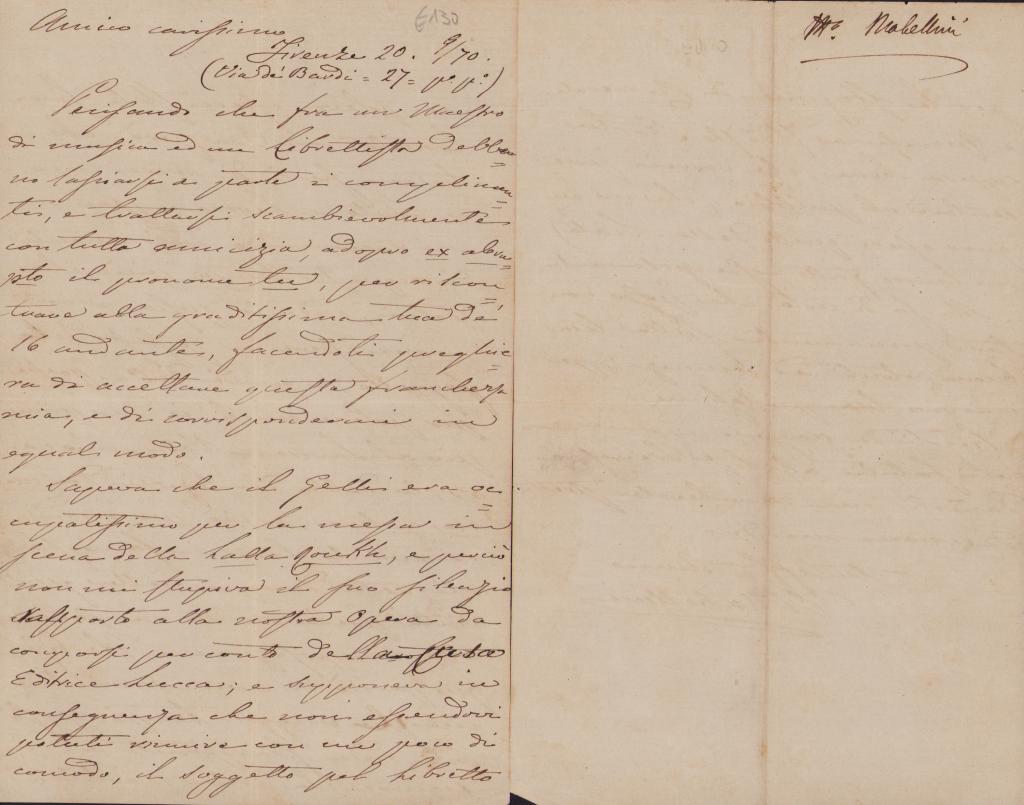 £130
Amico carissimo
Firenze 20. 9/70.
(Via de' Bardi = 27 = p.º p.º)
Pensando che fra un Maestro
di musica ed un Librettista debba=
no lasciarsi da parte i complimen=
ti, e trattarsi scambievolmente
con tutta amicizia, adopro ex abru=
pto il pronome tu, per riscon=
trare alla graditissima tua de'
16 andante, facendoti preghie=
ra di accettare questa franchezza
mia, e di corrispondermi in
egual modo.
Sapeva che il Gelli era oc=
cupatissimo per la messa in
scena della Lalla Roukh, e perciò
non mi stupiva il suo silenzio
rapporto alla nostra Opera da
comporsi per conto della Casa
Editrice Lucca; e supponeva in
conseguenza che non essendovi
potuti riunire con un poco di
comodo, il soggetto pel Libretto
Mº. Mabellini